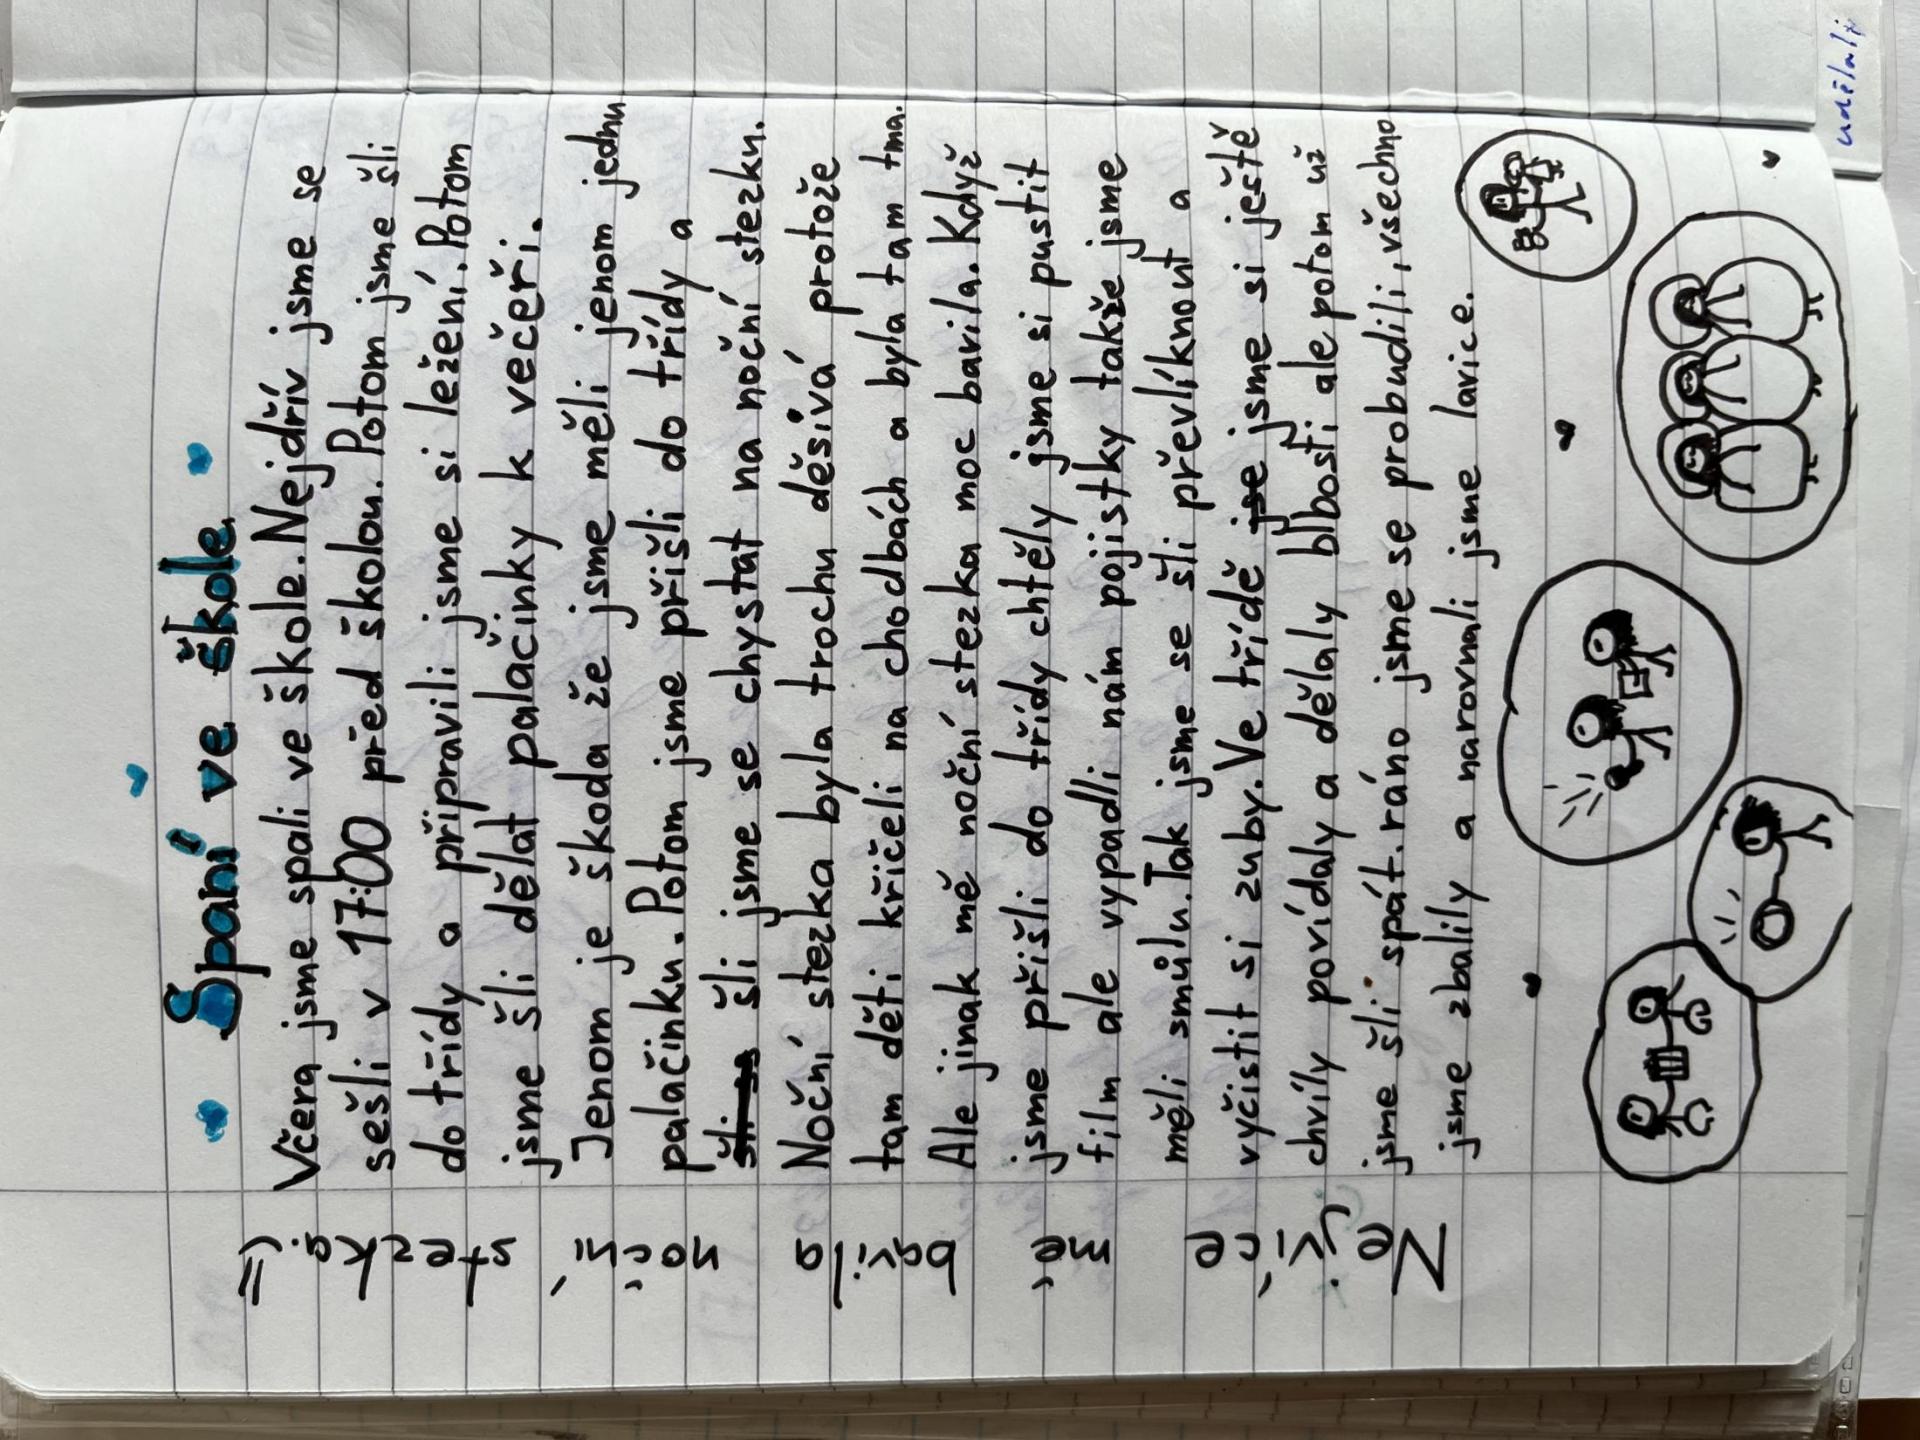 Spaní ve škole.
Včera jsme spali ve škole. Nejdřív jsme se
sešli v 17:00 před školou. Potom jsme šli
do třídy a připravili jsme si ležení. Potom
jsme šli dělat palačinky k večeři.
Jenom je škoda že jsme měli jenom jednu
palačinku. Potom jsme přišli do třídy a
šli jsme se chystat na noční stezku.
Noční stezka byla trochu děsivá protože
tam děti křičeli na chodbách a byla tam tma.
Ale jinak mě noční stezka moc bavila. Když
jsme přišli do třídy chtěly jsme si pustit
film ale vypadli nám pojistky takže jsme
měli smůlu. Tak jsme se šli převlíknout a
vyčistit si zuby. Ve třídě jse jsme si ještě
chvíly povídaly a dělaly blbosti ale potom už
jsme šli spát. ráno jsme se probudili, všechno
jsme zbalily a narovnali jsme lavice.
udělaly